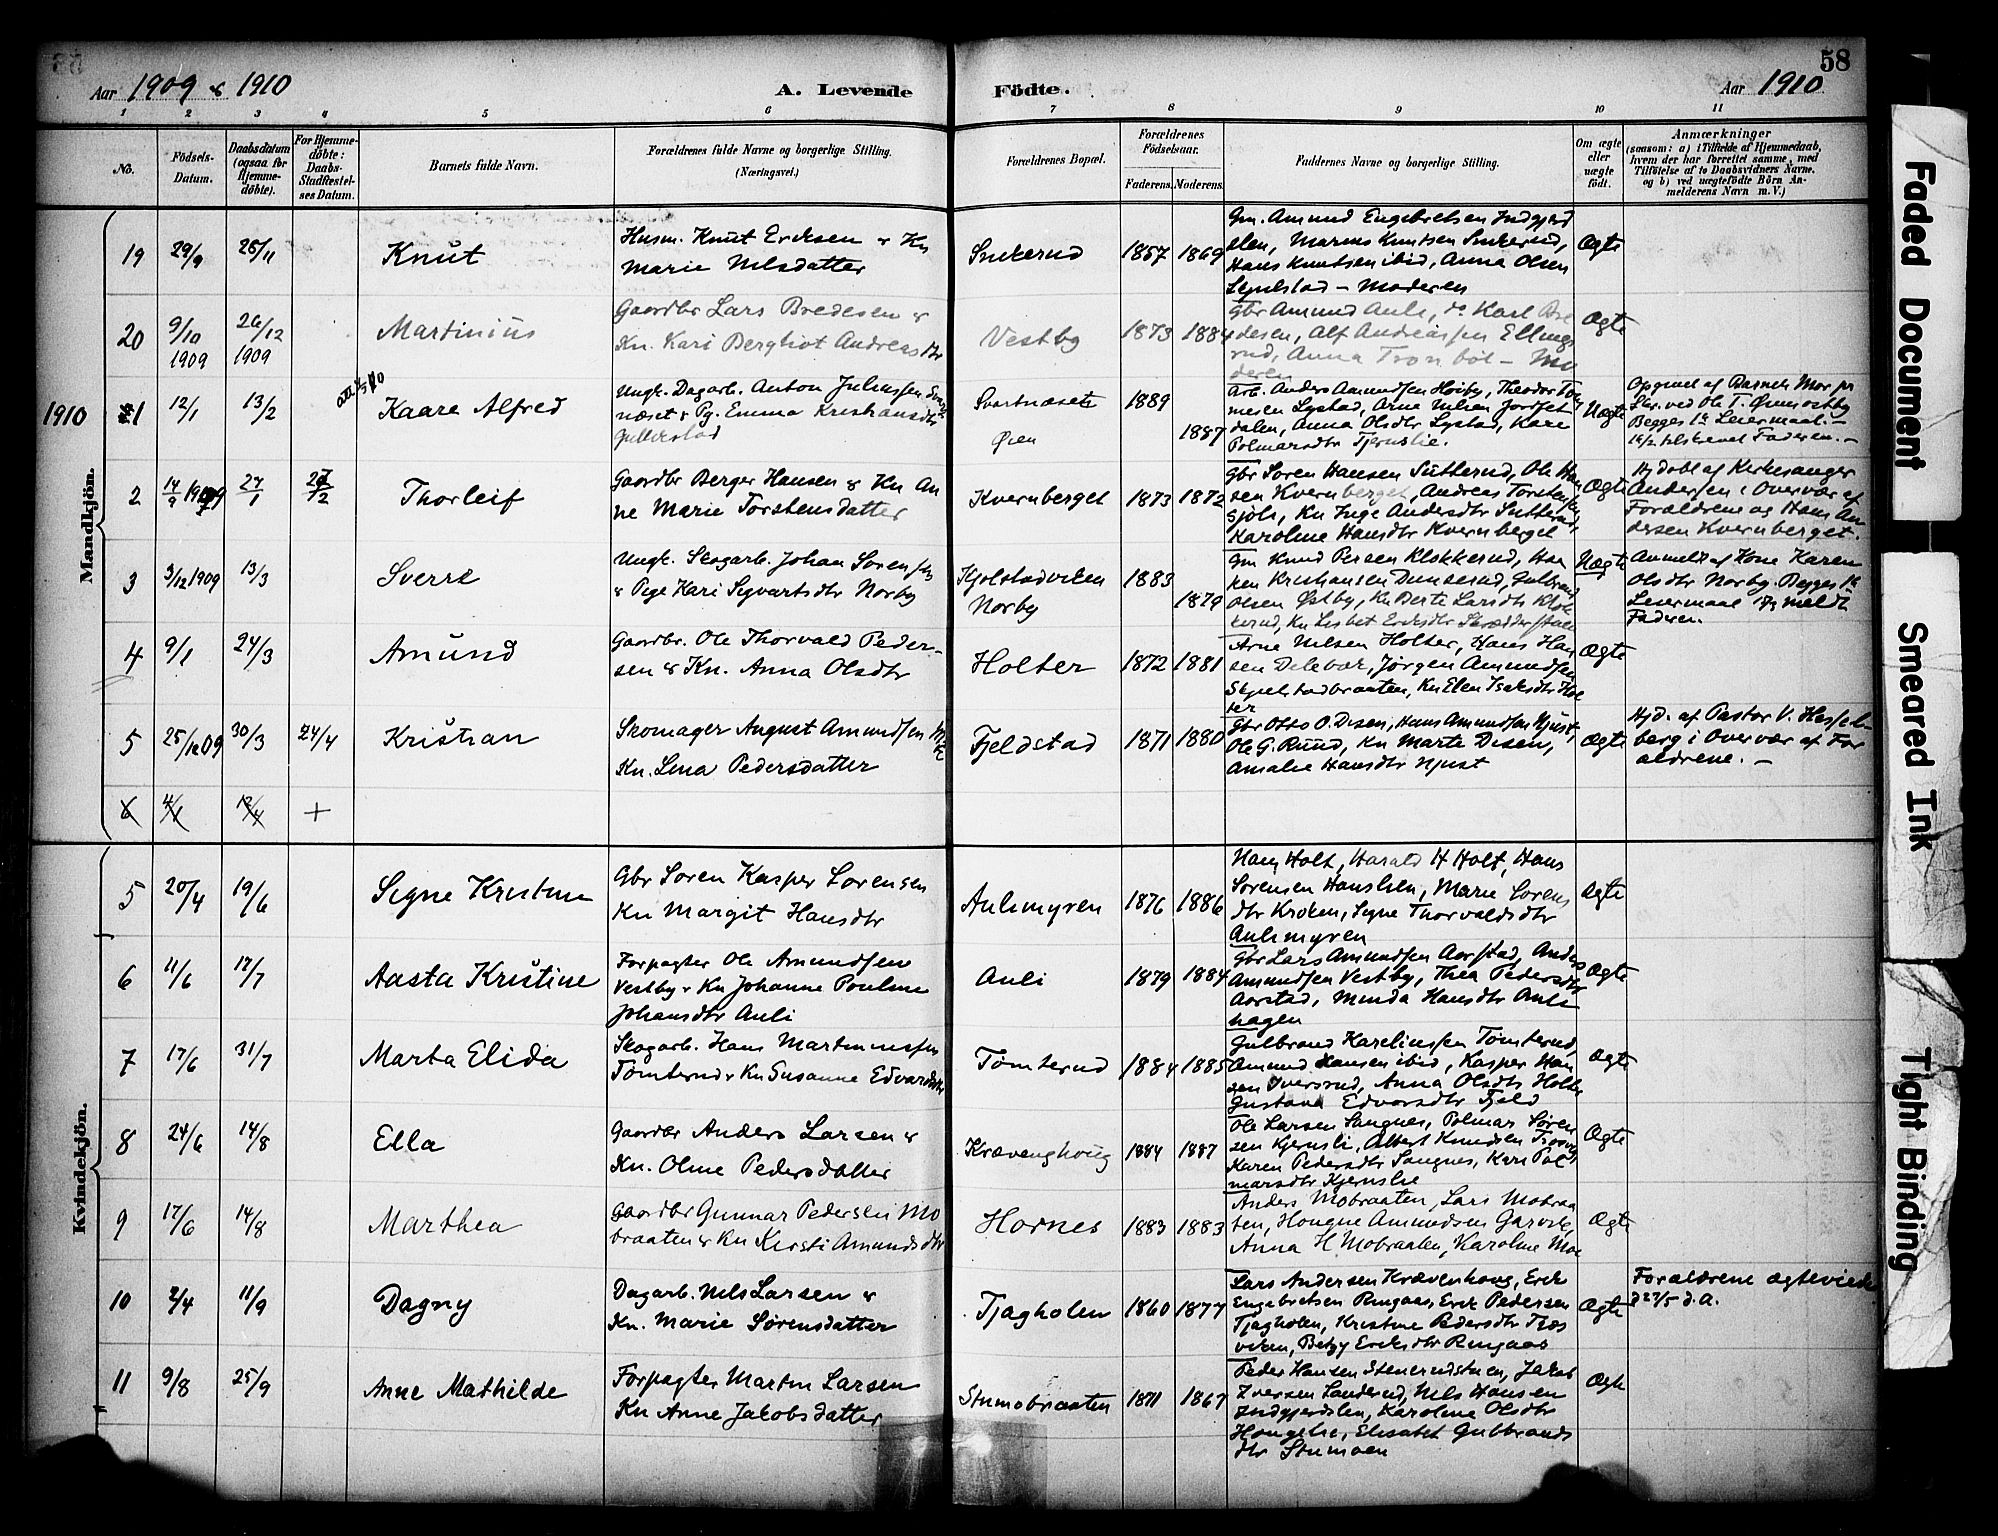 58
Aar 1909 & 1910
A. Levende Fødte.
Aar 1910
1 2 3 4 5 6 7 8 9 10 11
No.
Fødsels-Datum.
Daabsdatum (ogsaa for Hjemmedøbte).
For Hjemmedøbte: Daabs-Stadfæstelses Datum.
Barnets fulde Navn.
Forældrenes fulde Navne og borgerlige Stilling. (Næringsvei.)
Forældrenes Bopæl.
Forældrenes Fødselsaar.
Faderens. Moderens.
Faddernes Navne og borgerlige Stilling.
Om ægte eller uægte født.
Anmærkninger
(saasom: a) i Tilfælde af Hjemmedaab, hvem der har forrettet samme, med Tilføielse af to Daabsvidners Navne, og b) ved uægtefødte Børn Anmelderens Navn m. V.)
Mandkjøn.
19 29/9 28/11 Knut
Husm. Knut Eriksen & Kn
Marie Nilsdatter
Snekerud 1857 1869
Gm. Amund Engebretsen Indgjerd
slen, Marius Knutsen Snekerud,
Hans Knutsen ibid, Anna Olsen
– Moderen
Ægte
20 9/10 1909 26/12 1909 Martinius
Gaardbr Lars Bredesen &
Kn. Kari Bergliot Andreasdtr
Vestby 1873 1884
Gbr Amund Auli, do Karl Bre
desen, Alf Andreassen Ellings
rud, Anna Tronbøl – Mo
deren
Ægte
1910
1 12/1 13/2 Kaare Alfred
Ungk. Dagarb. Anton Juliussen Svart
næset & Pg. Emma Kristiansdtr
Gullerstad
Svartnæset Øien 1889 1887
Arb. Anders Amundsen Høiby, Theodor Tom
mesen Lystad, Arne Nilsen Jordset
dalen, Anna Olsdtr Lystad, Kare
Polmarsdtr Tjernslie.
Uægte
Opgivet af Barnets Mor pr
Skr. ved Ole T. Øien Østby
Begges 1ste Leiermaal. –
tilskrevet Faderen. –
2 14/9 1909 27/1 Thorleif
Gaardbr Berger Hansen & Kn An
ne Marie Torstensdatter
Kvernberget 1873 1872
Gbr Søren Hansen Sutterud, Ole Han
sen Kvernberget, Andreas Torstensen
Sjøli, Kn Inge Andersdtr Sutterud
Karoline Hansdtr Kvernberget
Ægte
Hjdøbt af Kirkesanger
Andersen i Overvær af
Forældrene og Hans An
dersen Kvernberget.
3 3/12 1909 13/3 Sverre
Ungk. Skogarb. Johan Sørensen
& Pige Kari Sigvartsdtr Norby
Kjolstadviken Norby 1883 1879
Gm Knud Persen Klokkerud, Haa
ken Kristiansen Dunserud, Gulbrand
Olsen Østby, Kn Berte Larsdtr Klok
kerud, Kn Lisbet Eriksdtr
Uægte
Anmeldt af Kone Karen
Olsdtr Norby. Begges 1ste
Leiermaal meldt
Faderen.
4 9/1 24/3 Amund
Gaardbr. Ole Thorvald Peder-
sen & Kn. Anna Olsdtr
Holter 1872 1881
Arne Nilsen Holter, Hans Han
sen Delebæk, Jørgen Amundsen
Skjelstadbraaten, Kn Elen Isaksdtr Hol
ter
Ægte
5 25/12 09 30/3 24/4 Kristian
Skomager August Amundsen
Kn. Lina Pedersdatter
Fjeldstad 1871 1880
Gbr Otto O. Disen, Hans Amundsen Njust,
Ole G. Ruud, Kn Marte Disen,
Amalie Hansdtr Njust
Ægte
Hjd. af Pastor V. Hassel-
berg i Overvær af For
ældrene. –
6 4/1 12/4 +
Kvindekjøn.
5 20/4 19/6 Signe Kristine
Gbr Søren Kasper Sørensen
Kn Margit Hansdtr
Aulimyren 1876 1886
Hans Holt, Harald H Holt, Hans
Sørensen Hanslien, Marie Sørens
dtr Kroken, Signe Thorvaldsdtr
Aulimyren
Ægte
6 11/6 17/7 Aasta Kristine
Forpagter Ole Amundsen
Vestby & Kn Johanne Pouline
Johansdtr Auli
Auli 1879 1884
Gbr Lars Amundsen Aarstad, Anders
Amundsen Vestby, Thea Pedersdtr
Aarstad, Minda Hansdtr Auli
hagen
Ægte
7 17/6 31/7 Marta Elida
Skogarb. Hans Martinussen
Tømterud & Kn Susanne Edvardsdtr
Tømterud 1884 1885
Gulbrand Karelinssen Tømterud,
Amund Hansen ibid, Kasper Han
sen Iversrud, Anna Olsdtr Holter
Gustava Edvarsdtr Fjeld
Ægte
8 24/6 14/8 Ella
Gaardbr Anders Larsen &
Kn. Oline Pedersdatter
Krævenghoug 1884 1887
Ole Larsen Sangnes, Polmar Søren
sen Kjernsli, Albert Knudsen
Karen Pedersdtr Sangnes, Kari Pol
marsdtr Kjernslie
Ægte
9 17/6 14/8 Marthea
Gaardbr Gunnar Pedersen Mo
braaten & Kn Kersti Amundsdtr
Hornes 1883 1883
Anders Mobraaten, Lars Mobraa
ten, Hougne Amundsen Garvik,
Anna H Mobraaten, Karoline Moe
Ægte
10 2/4 11/9 Dagny
Dagarb. Nils Larsen &
Kn. Marie Sørensdatter
Tjagholen 1860 1877
Lars Andersen Krævenhoug, Erik
Engebretsen Ringaas, Erik Pedersen
Tjagholen, Kristine Pedersdtr Næs
viken, Betzy Eriksdtr Ringaas
Ægte
Forældrene ægteviede
d 27/5 d.A.
11 9/8 25/9 Anne Mathilde
Forpagter Martin Larsen
Kn Anne Jakobsdatter
Stumobraaten 1871 1867
Peder Hansen Stenerudstuen, Jakob
Iversen Sanderud, Nils Hansen
Indgjerdslen, Karoline Olsdtr
Hougslie, Elisabet Gulbrands
dtr Stumoen
Ægte
Faded Document
Smeared Ink
Tight Binding